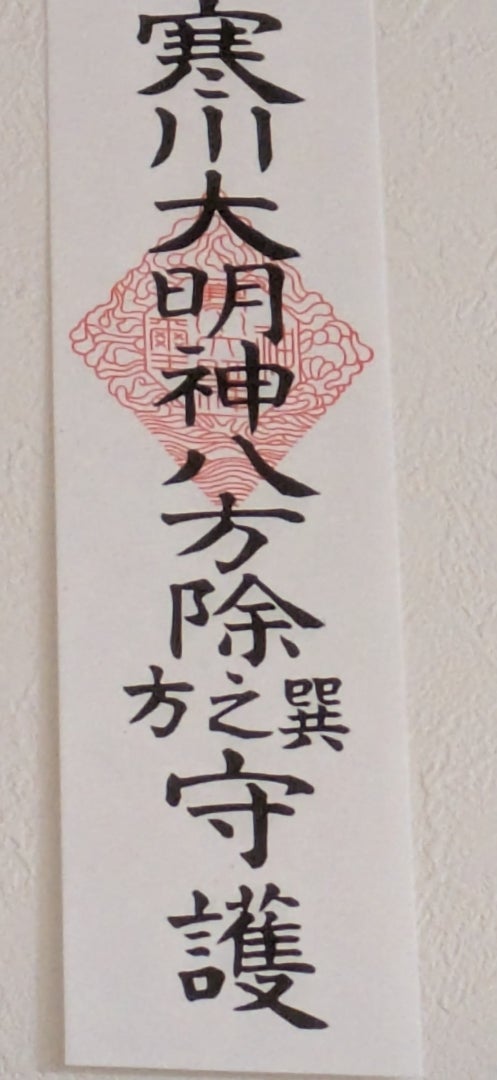 寒川大明神八方除
巽之方
守護